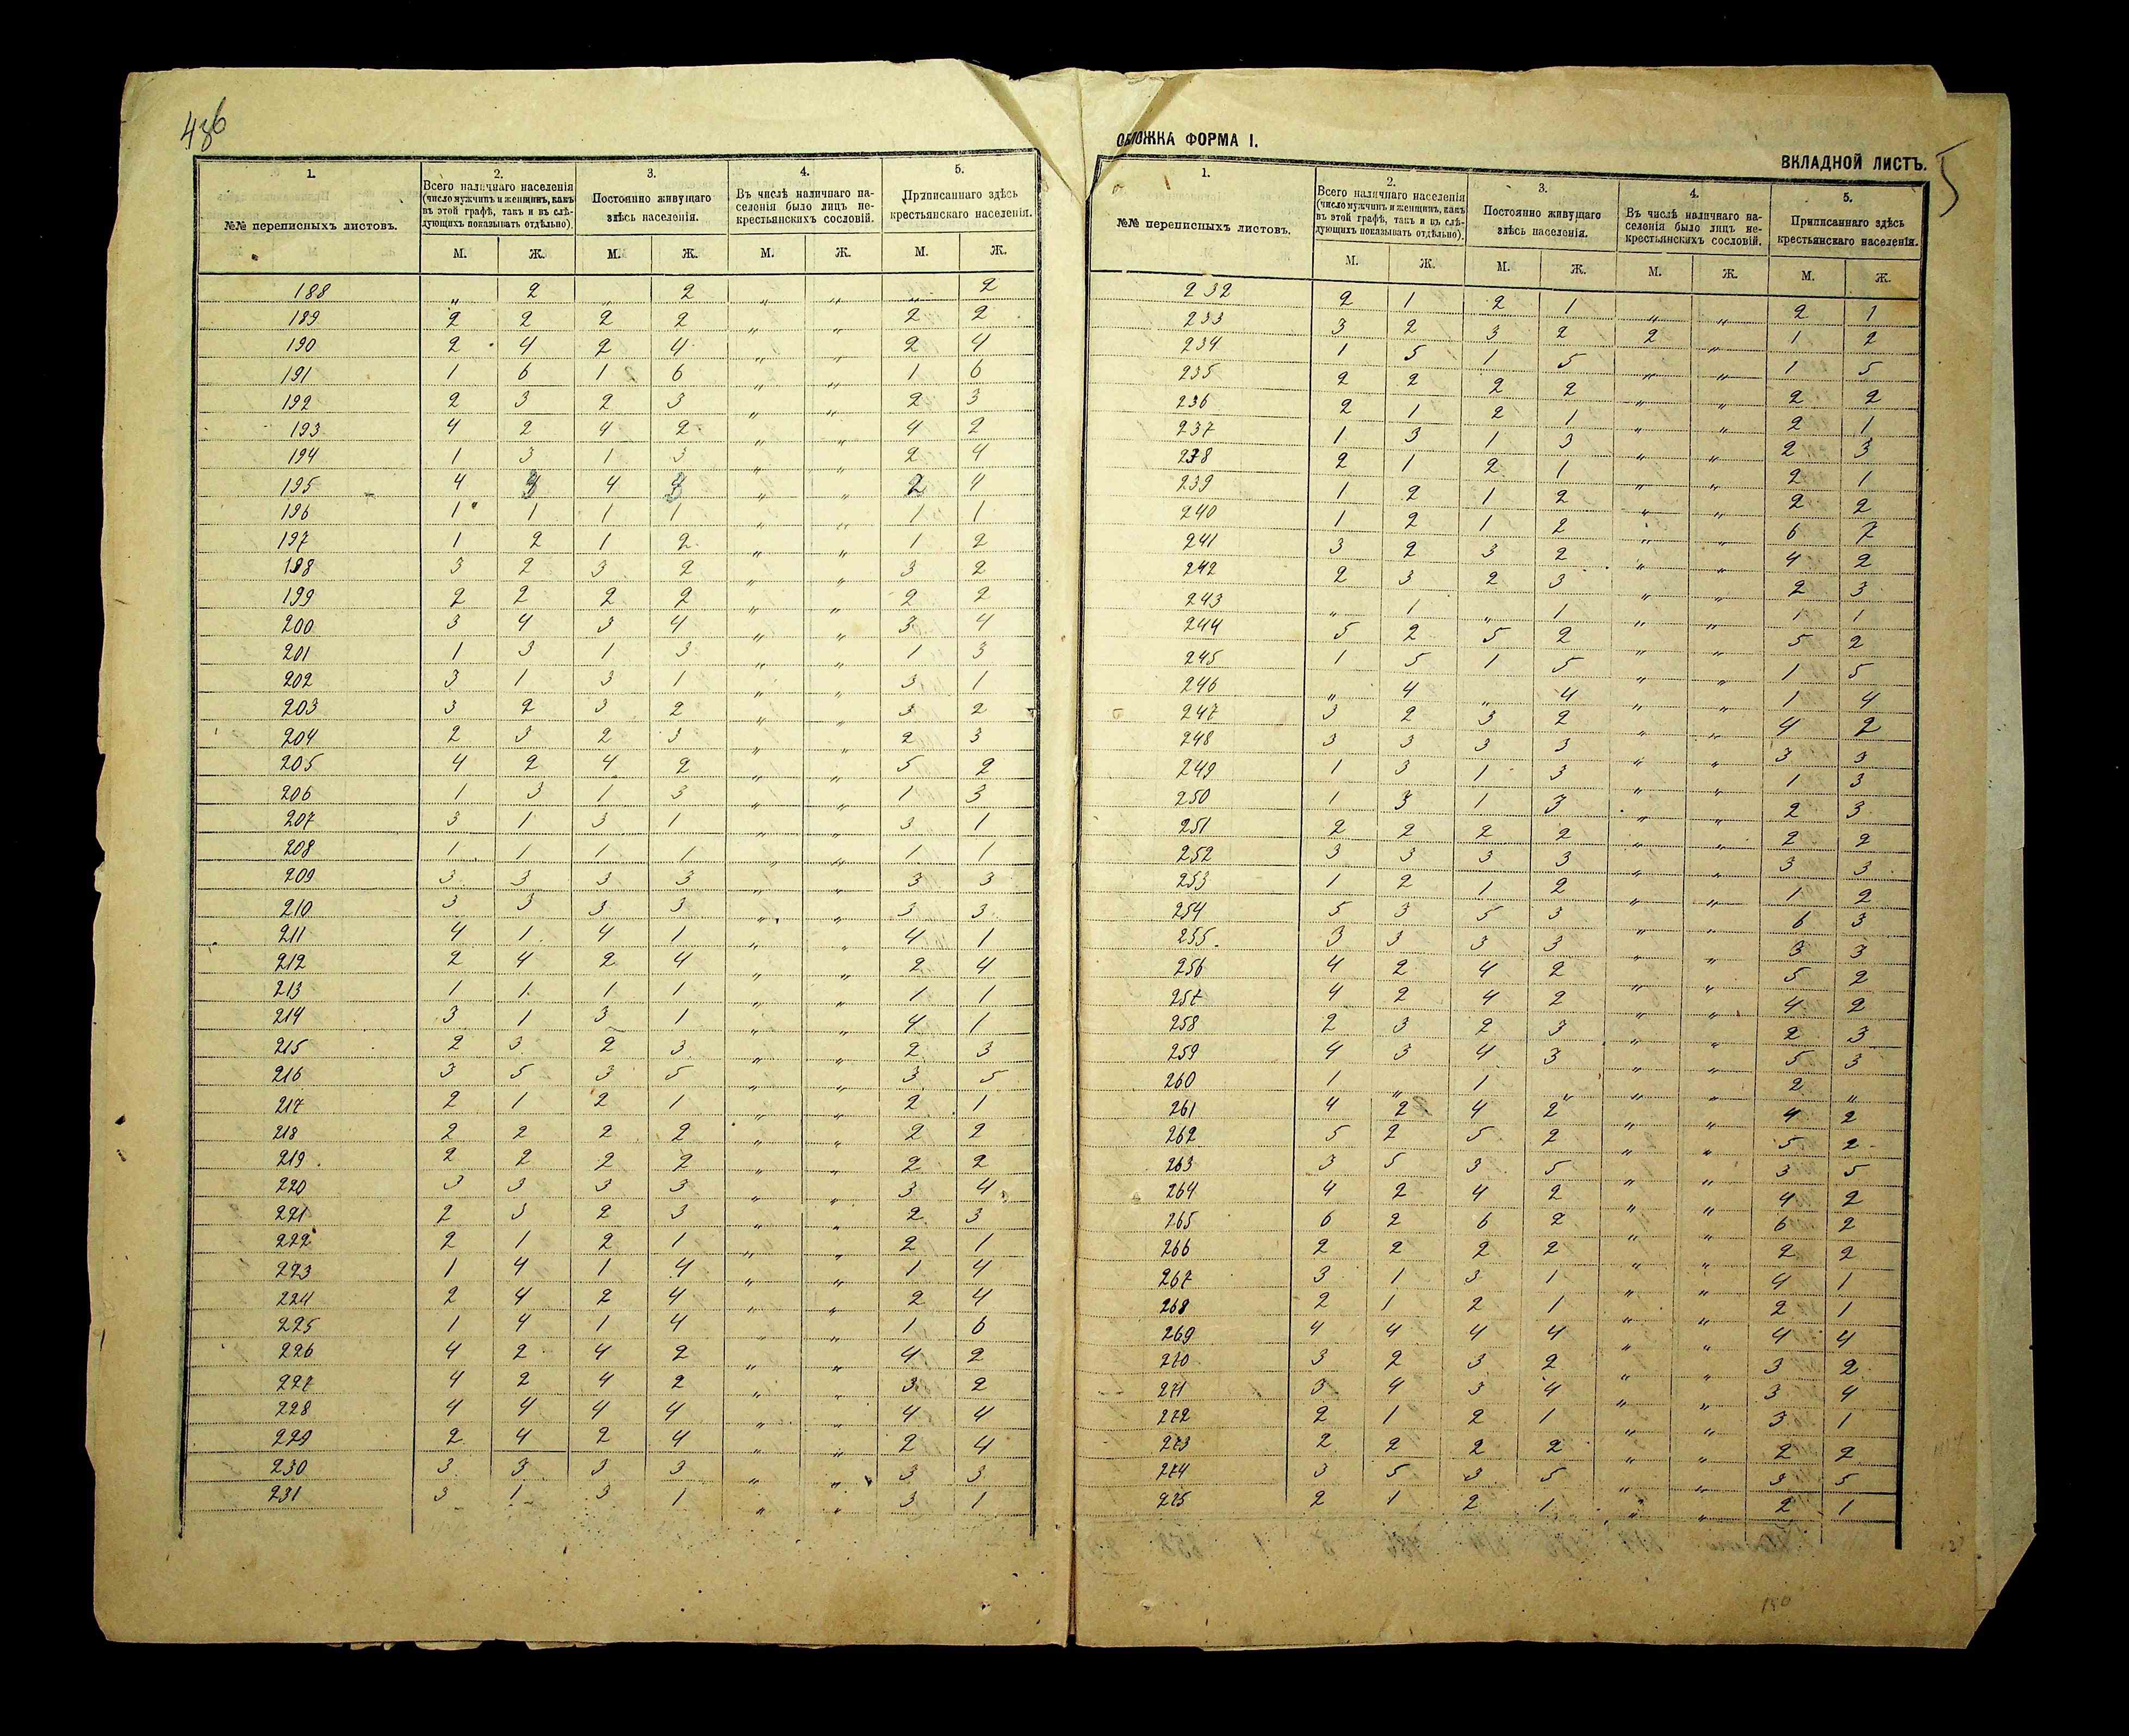 436
1. 2. 3. 4. 5.
№№ переписныхъ листовъ. Всего наличнаго населенія (число мужчинъ и женщинъ, какъ въ этой графѣ, такъ и въ слѣдующихъ показывать отдѣльно). Постоянно живущаго здѣсь населенія. Въ числѣ наличнаго населенія было лицъ некрестьянскихъ сословій. Приписаннаго здѣсь крестьянскаго населенія.
М. Ж. М. Ж. М. Ж. М. Ж.
188 " 2 " 2 " " " 2
189 2 2 2 2 " " 2 2
190 2 4 2 4 " " 2 4
191 1 6 1 6 " " 1 6
192 2 3 2 3 " " 2 3
193 4 2 4 2 " " 4 2
194 1 3 1 3 " " 2 4
195 4 4 " " 2 4
196 1 1 1 1 " " 1 1
197 1 2 1 2 " " 1 2
198 3 2 3 2 " " 3 2
199 2 2 2 2 " " 2 2
200 3 4 3 4 " " 3 4
201 1 3 1 3 " " 1 3
202 3 1 3 1 " " 3 1
203 3 2 3 2 " " 3 2
204 2 3 2 3 " " 2 3
205 4 2 4 2 " " 5 2
206 1 3 1 3 " " 1 3
207 3 1 3 1 " " 3 1
208 1 1 1 1 " " 1 1
209 3 3 3 3 " " 3 3
210 3 3 3 3 " " 3 3
211 4 1 4 1 " " 4 1
212 2 4 2 4 " " 2 4
213 1 1 1 1 " " 1 1
214 3 1 3 1 " " 4 1
215 2 3 2 3 " " 2 3
216 3 5 3 5 " " 3 5
217 2 1 2 1 " " 2 1
218 2 2 2 2 " " 2 2
219 2 2 2 2 " " 2 2
220 3 3 3 3 " " 3 4
221 2 3 2 3 " " 2 3
222 2 1 2 1 " " 2 1
223 1 4 1 4 " " 1 4
224 2 4 2 4 " " 2 4
225 1 4 1 4 " " 1 6
226 4 2 4 2 " " 4 2
227 4 2 4 2 " " 3 2
228 4 4 4 4 " " 4 4
229 2 4 2 4 " " 2 4
230 3 3 3 3 " " 3 3
231 3 1 3 1 " " 3 1
ФОРМА I.
ВКЛАДНОЙ ЛИСТЪ. 5
1. 2. 3. 4. 5.
№№ переписныхъ листовъ. Всего наличнаго населенія (число мужчинъ и женщинъ, какъ въ этой графѣ, такъ и въ слѣдующихъ показывать отдѣльно). Постоянно живущаго здѣсь населенія. Въ числѣ наличнаго населенія было лицъ некрестьянскихъ сословій. Приписаннаго здѣсь крестьянскаго населенія.
М. Ж. М. Ж. М. Ж. М. Ж.
232 2 1 2 1 " " 2 1
233 3 2 3 2 2 " 1 2
234 1 5 1 5 " " 1 5
235 2 2 2 2 " " 2 2
236 2 1 2 1 " " 2 1
237 1 3 1 3 " " 2 3
238 2 1 2 1 " " 2 1
239 1 2 1 2 " " 2 2
240 1 2 1 2 " " 6 7
241 3 2 3 2 " " 4 2
242 2 3 2 3 " " 2 3
243 " 1 " 1 " " 1 1
244 5 2 5 2 " " 5 2
245 1 5 1 5 " " 1 5
246 " 4 " 4 " " 1 4
247 3 2 3 2 " " 4 2
248 3 3 3 3 " " 3 3
249 1 3 1 3 " " 1 3
250 1 3 1 3 " " 2 3
251 2 2 2 2 " " 2 2
252 3 3 3 3 " " 3 3
253 1 2 1 2 " " 1 2
254 5 3 5 3 " " 6 3
255 3 3 3 3 " " 3 3
256 4 2 4 2 " " 5 2
257 4 2 4 2 " " 4 2
258 2 3 2 3 " " 2 3
259 4 3 4 3 " " 5 3
260 1 " 1 " " " 2 "
261 4 2 4 2 " " 4 2
262 5 2 5 2 " " 5 2
263 3 5 3 5 " " 3 5
264 4 2 4 2 " " 4 2
265 6 2 6 2 " " 6 2
266 2 2 2 2 " " 2 2
267 3 1 3 1 " " 4 1
268 2 1 2 1 " " 2 1
269 4 4 4 4 " " 4 4
270 3 2 3 2 " " 3 2
271 3 4 3 4 " " 3 4
272 2 1 2 1 " " 3 1
273 2 2 2 2 " " 2 2
274 3 5 3 5 " " 3 5
275 2 1 2 1 " " 2 1